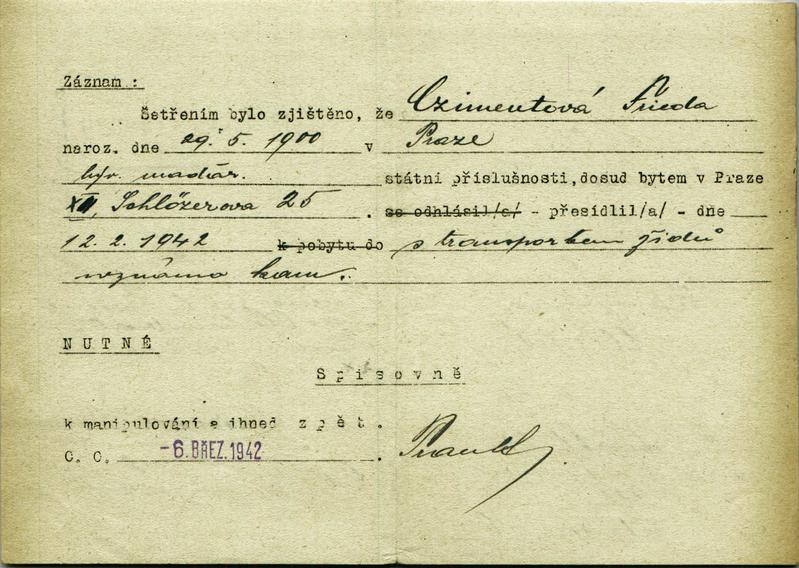 Záznam :
Šetřením bylo zjištěno, že Czimentová Frieda
naroz. dne 29. 5. 1900 v Praze
býv. maďar. státní příslušnosti, dosud bytem v Praze
XII, Schlözerova 25 . se odhlásil/a/ - přesídlil/a/ - dne
12. 2. 1942 k pobytu do s transportem židů
neznámo kam.
NUTNÉ
Spisovně
k manipulování a ihned zpět.
C. C. -6. BŘEZ. 1942 .